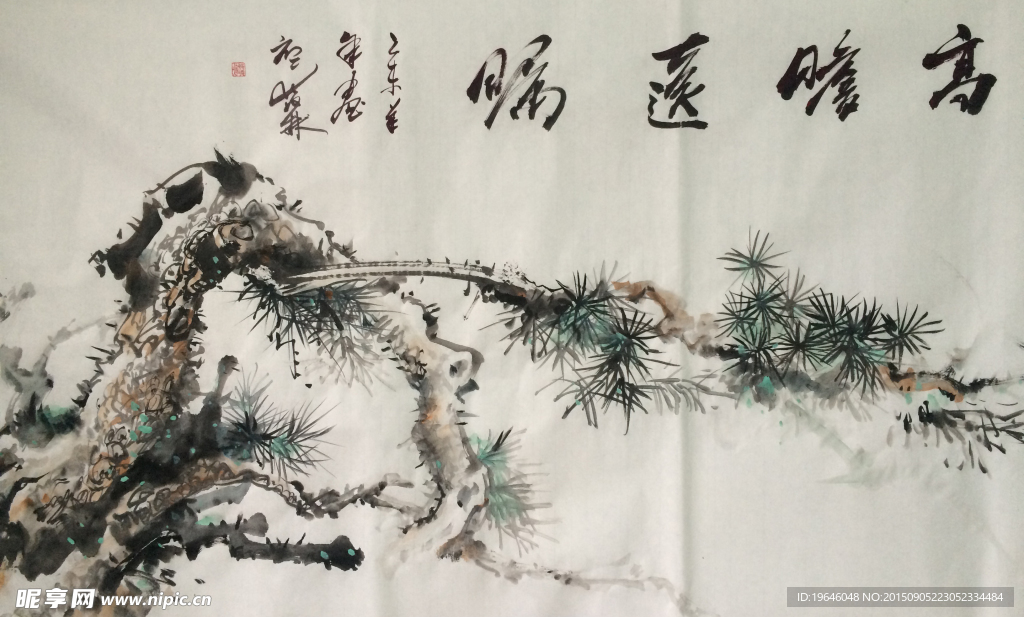 高瞻遠瞩
乙未羊
年画
昵享网 www.nipic.cn
ID:19646048 NO:20150905223052334484